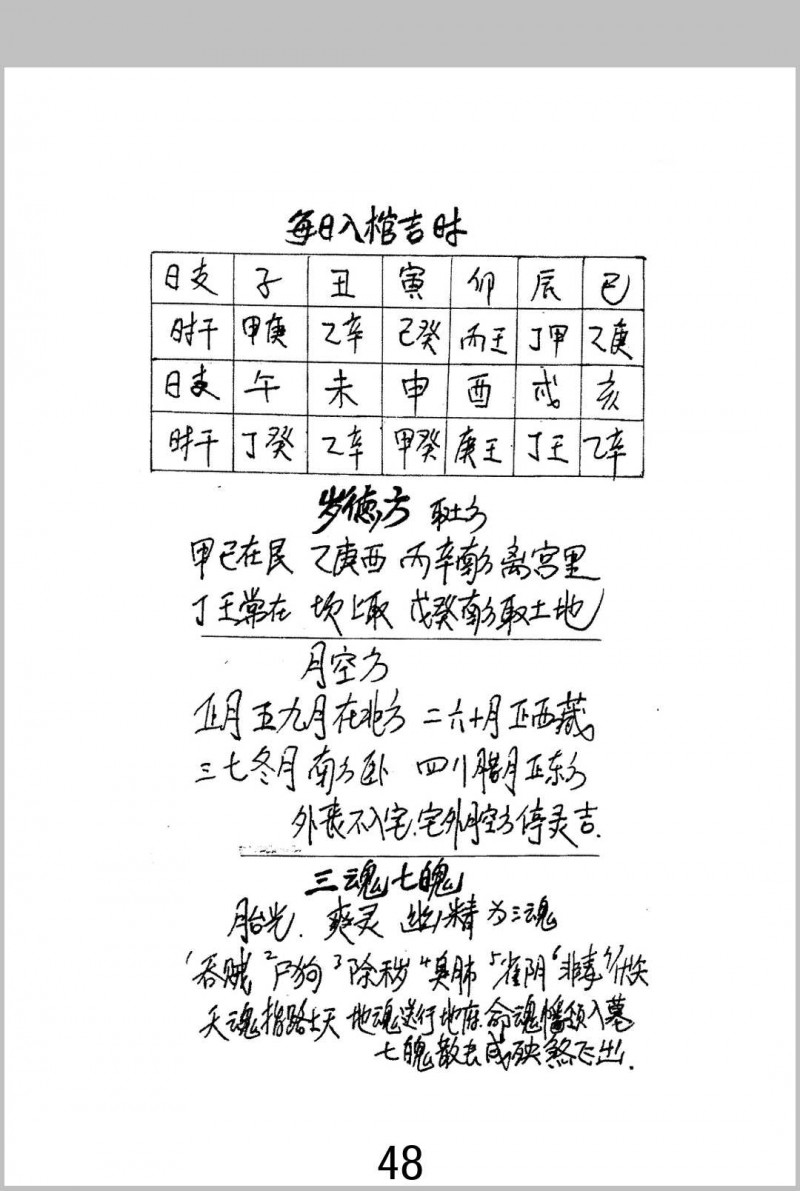 每日入棺吉时
日支 子 丑 寅 卯 辰 巳
时干 甲庚 乙辛 己癸 丙壬 丁甲 乙庚
日支 午 未 申 酉 戌 亥
时干 丁癸 乙辛 甲癸 庚壬 丁壬 乙辛
岁德方 取土方
甲己在艮 乙庚西 丙辛南方离宫里
丁壬常在 坎上取 戊癸南方取土地
月空方
正月五九月在北方 二六十月正西藏
三七冬月南方卧 四川腊月正东方
外丧不入宅.宅外月空方停灵吉.
三魂七魄
胎光.爽灵 幽精为三魂
1吞贼 2尸狗 3除秽 4臭肺 5雀阴 6非毒 7伏矢
天魂指路上天 地魂送行地府 命魂幡领入墓
七魄散去成殃煞飞出.
48